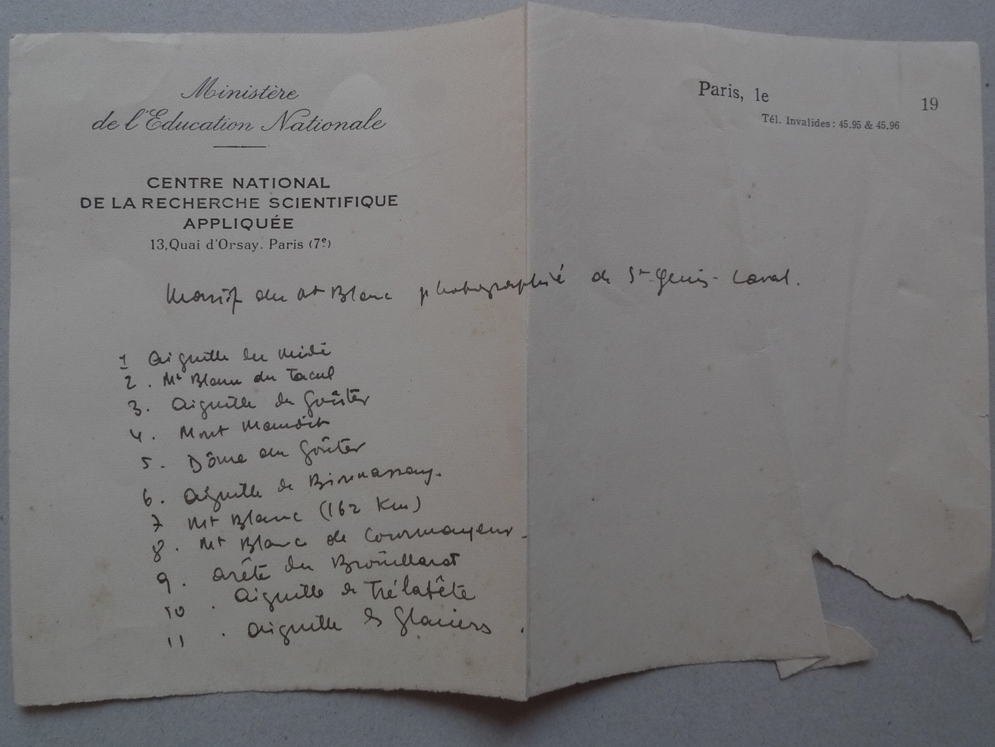 Ministère
de l'Education Nationale
CENTRE NATIONAL
DE LA RECHERCHE SCIENTIFIQUE
APPLIQUÉE
13, Quai d'Orsay. Paris (7e)
Paris, le 19
Tél. Invalides : 45.95 & 45.96
Massif du Mt Blanc photographié de St-Genis-Laval.
1 Aiguille du Midi
2. Mt Blanc du Tacul
3. Aiguille du Goûter
4. Mont Maudit
5. Dôme du Goûter
6. Aiguille de Bionnassay.
7 Mt Blanc (162 Km)
8. Mt Blanc de Courmayeur.
9. arête du Brouillard
10. Aiguille de Trélatête
11. Aiguille des Glaciers.